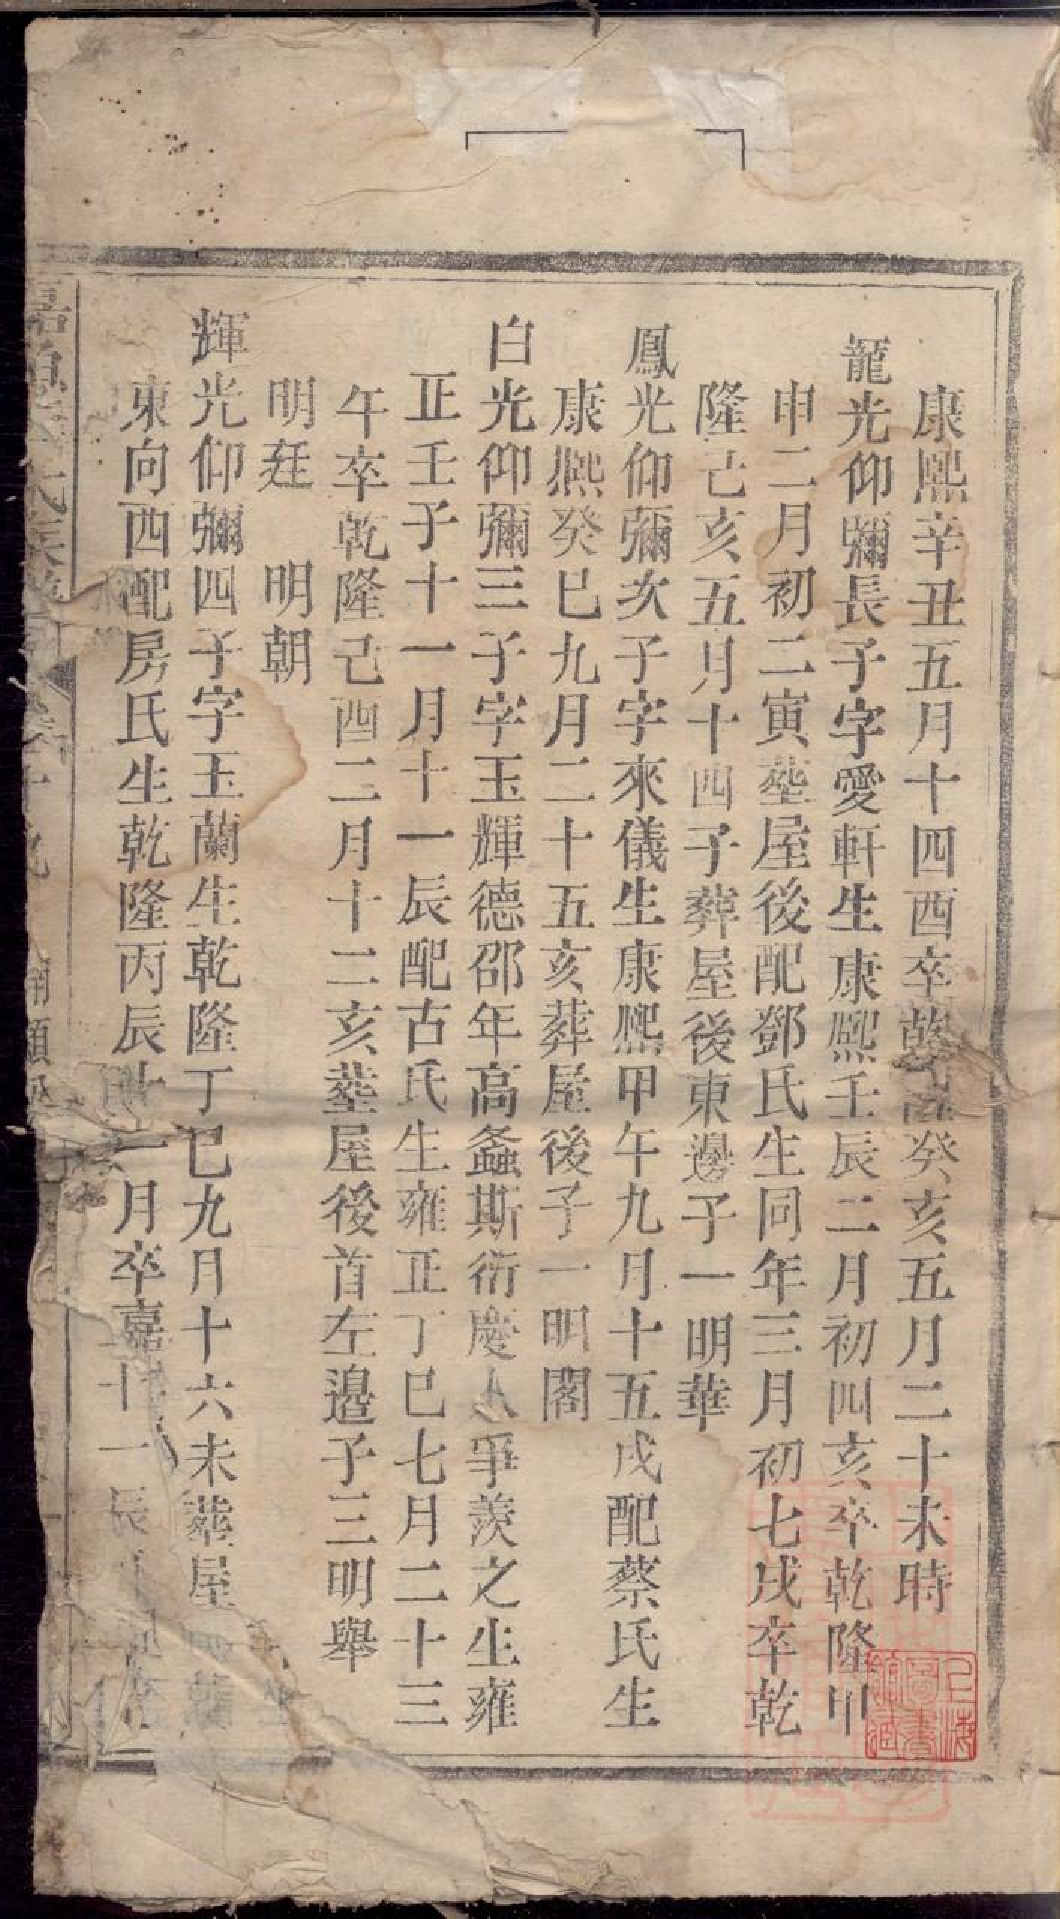 康熙辛丑五月十四酉卒乾隆癸亥五月二十未時
龍光仰彌長子字愛軒生康熙壬辰二月初四亥卒乾隆甲
申二月初二寅塟屋後配鄧氏生同年三月初七戌卒乾
隆己亥五月十四子葬屋後東邊子一明華
鳳光仰彌次子字來儀生康熙甲午九月十五戌配蔡氏生
康熙癸巳九月二十五亥葬屋後子一明閣
白光仰彌三子字玉輝德邵年高螽斯衍慶人爭羨之生雍
正壬子十一月十一辰配古氏生雍正丁巳七月二十三
午卒乾隆己酉二月十二亥塟屋後首左邉子三明舉
明廷 明朝
輝光仰彌四子字玉蘭生乾隆丁巳九月十六未塟屋
東向西配房氏生乾隆丙辰 一月卒嘉 十一辰
嘉應 氏族譜 卷十九
上海圖書館藏